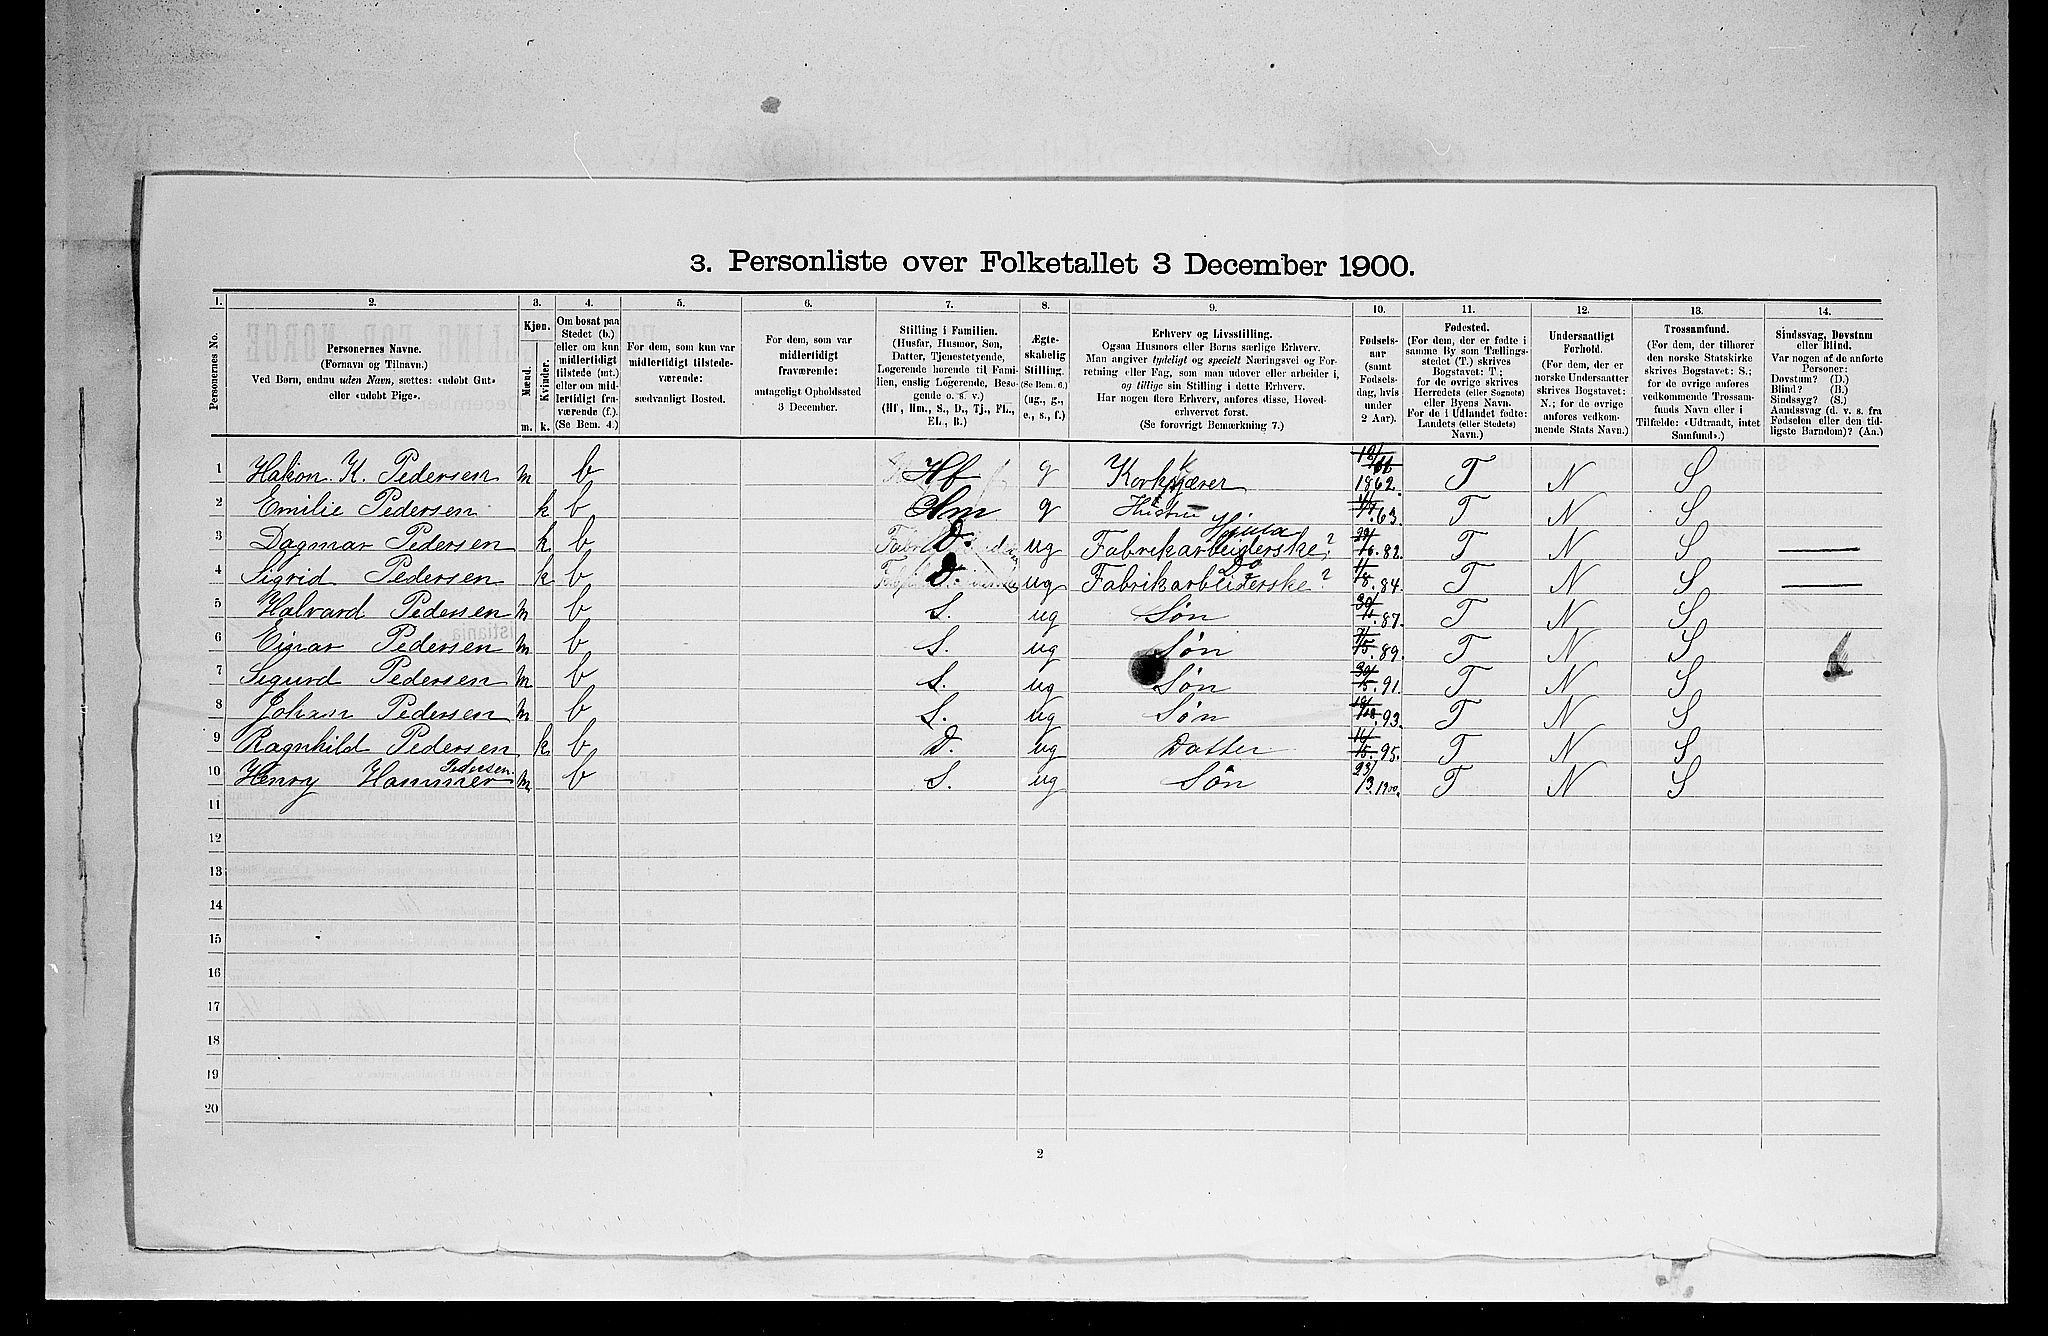 3. Personliste over Folketallet 3 December 1900.
1. 2. 3. 4. 5. 6. 7. 8. 9. 10. 11. 12. 13. 14.
Personernes No.
Personernes Navne.
(Fornavn og Tilnavn.)
Ved Børn, endnu uden Navn, sættes: «udøbt Gut»
eller «udøbt Pige».
Kjøn.
Mænd.
Kvinder.
m. k.
Om bosat paa
Stedet (b.)
eller om kun
midlertidigt
tilstede (mt.)
eller om mid-
lertidigt fra-
værende (f.).
(Se Bem. 4.)
For dem, som kun var
midlertidigt tilstede-
værende:
sædvanligt Bosted.
For dem, som var
midlertidigt
fraværende:
antageligt Opholdssted
3 December.
Stilling i Familien.
(Husfar, Husmor, Søn,
Datter, Tjenestetyende,
Logerende hørende til Fami-
lien, enslig Logerende, Besø-
gende o. s. v.)
(Hf, Hm., S., D., Tj., FL.,
EL., B.)
Ægte-
skabelig
Stilling.
(Se Bem. 6.)
(ug., g.,
e., s., f.)
Erhverv og Livsstilling.
Ogsaa Husmors eller Børns særlige Erhverv.
Man angiver tydeligt og specielt Næringsvei og For-
retning eller Fag, som man udøver eller arbeider i,
og tillige sin Stilling i dette Erhverv.
Har nogen flere Erhverv, anføres disse, Hoved-
erhvervet først.
(Se forøvrigt Bemærkning 7.)
Fødsels-
aar
(samt
Fødsels-
dag, hvis
under
2 Aar).
Fødested.
(For dem, der er fødte i
samme By som Tællings-
stedet (T.) skrives
Bogstavet: T;
for de øvrige skrives
Herredets (eller Sognets)
eller Byens Navn.
For de i Udlandet fødte:
Landets (eller Stedets)
Navn.)
Undersaatligt
Forhold.
(For dem, der er
norske Undersaatter
skrives Bogstavet:
N.; for de øvrige
anføres vedkom-
mende Stats Navn.)
Trossamfund.
(For dem, der tilhører
den norske Statskirke
skrives Bogstavet: S.;
for de øvrige anføres
vedkommende Trossam-
funds Navn eller i
Tilfælde: «Udtraadt, intet
Samfund».)
Sindssvag, Døvstum
eller Blind.
Var nogen af de anførte
Personer:
Døvstum? (D.)
Blind? (B.)
Sindssyg? (S.)
Aandssvag (d. v. s. fra
Fødselen eller den tid-
ligste Barndom)? (Aa.)
1 Hakon K. Pedersen m b Hf g 1862. T N S
2 Emilie Pedersen k b Hm g Hustru 63. T N S
3 Dagmar Pedersen k b D. ug Fabrikarbeiderske? 82. T N S —
4 Sigrid Pedersen k b D. ug Fabrikarbeiderske? Do 84. T N S —
5 Halvard Pedersen m b S. ug Søn 87. T N S
6 Einar Pedersen m b S. ug Søn 89. T N S
7 Sigurd Pedersen m b S. ug Søn 91. T N S
8 Johan Pedersen m b S. ug Søn 93. T N S
9 Ragnhild Pedersen k b D. ug Datter 95. T N S
10 Henry Hammer Pedersen. m b S. ug Søn 23/3 1900. T N S
11
12
13
14
15
16
17
18
19
20
2